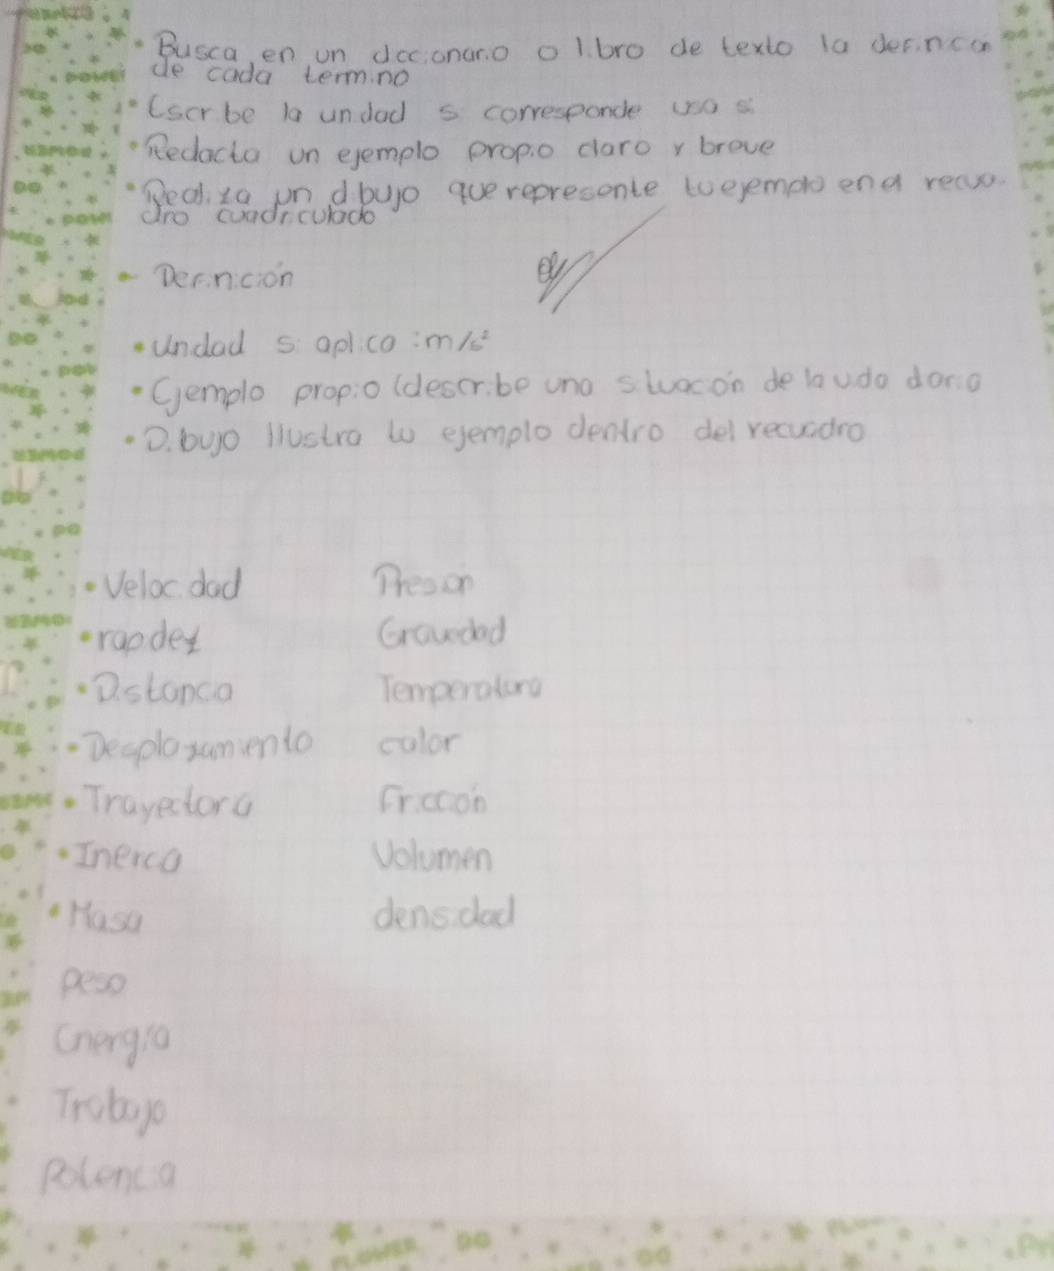 Busca en un diccionario o libro de texto la definición
de cada termino
Escribe la unidad si corresponde usa si
Redacta un ejemplo propio claro y breve
Realiza un dibujo que represente tu ejemplo en el recua-
dro cuadriculado
Definición
Unidad si aplica : m/s²
Ejemplo propio (describe una situacion de la vida daria
Dibujo ilustra tu ejemplo dentro del recuadro
Velocidad
rapidez
Distancia
Desplazamiento
Trayectoria
Inercia
Masa
peso
Energia
Trabajo
Potencia
Presion
Gravedad
Temperatura
calor
Fricción
Volumen
densidad